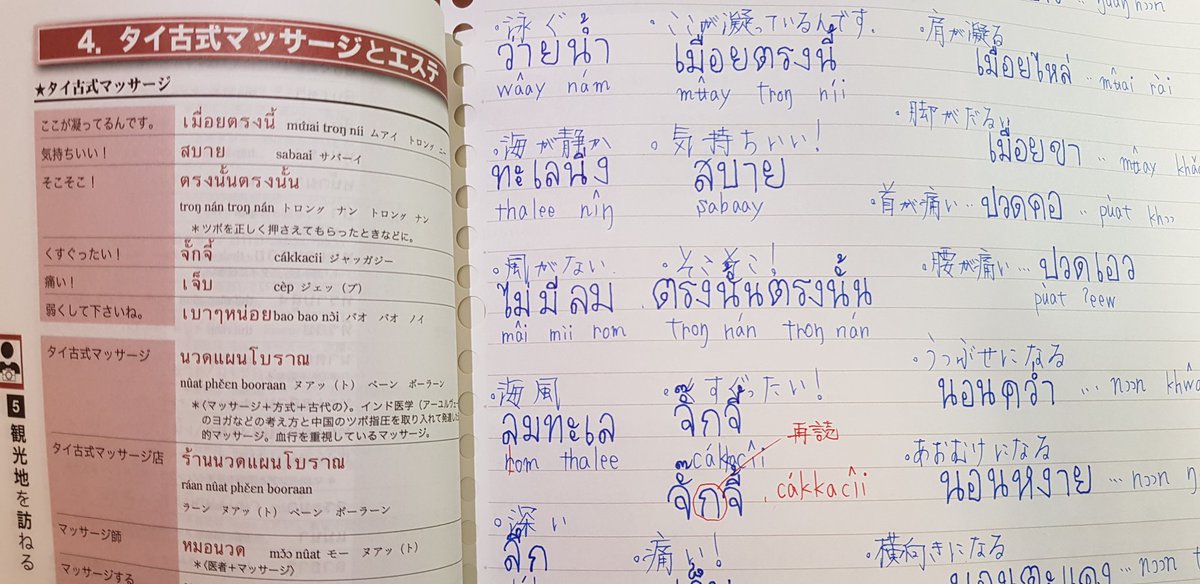 4. タイ古式マッサージとエステ
★タイ古式マッサージ
ここが凝ってるんです。 เมื่อยตรงนี้ mɯ̂ai troŋ níi ムアイ トロング ニー
気持ちいい! สบาย sabaai サバーイ
そこそこ! ตรงนั้นตรงนั้น
troŋ nán troŋ nán トロング ナン トロング ナン
*ツボを正しく押さえてもらったときなどに。
くすぐったい! จั๊กจี้ cákkacîi ジャッガジー
痛い! เจ็บ cèp ジェッ(プ)
弱くして下さいね。 เบาๆหน่อย bao bao nɔ̀i バオ バオ ノイ
タイ古式マッサージ นวดแผนโบราณ
nûat phɛ̌ɛn booraan ヌアッ(ト) ペーン ボーラーン
*〈マッサージ+方式+古代の〉。インド医学(アーユルヴェ
のヨガなどの考え方と中国のツボ指圧を取り入れて発達した
的マッサージ。血行を重視しているマッサージ。
タイ古式マッサージ店 ร้านนวดแผนโบราณ
ráan nûat phɛ̌ɛn booraan
ラーン ヌアッ(ト) ペーン ボーラーン
マッサージ師 หมอนวด mɔ̌ɔ nûat モー ヌアッ(ト)
*〈医者+マッサージ〉
マッサージする
5 観光地を訪ねる
泳ぐ
ว่ายน้ำ
wâay nám
海が静か
ทะเลนิ่ง
thalee nîŋ
風がない
ไม่มีลม
mâi mii rom
海風
ลมทะเล
rom thalee
深い
ลึก
ここが凝っているんです。
เมื่อยตรงนี้
mɯ̂ay troŋ níi
気持ちいい!
สบาย
sabaay
そこそこ!
ตรงนั้นตรงนั้น
troŋ nán troŋ nán
くすぐったい!
จั๊กจี้
cákkacîi
再読
จั๊กจี้ cákkacîi
痛い!
肩が凝る
เมื่อยไหล่ … mɯ̂ai rài
脚がだるい
เมื่อยขา … mɯ̂ay khǎa
首が痛い … ปวดคอ … pùat khɔɔ
腰が痛い … ปวดเอว
pùat ʔeew
うつぶせになる
นอนคว่ำ … nɔɔn
あおむけになる
นอนหงาย … nɔɔn
横向きになる
นอนตะแคง